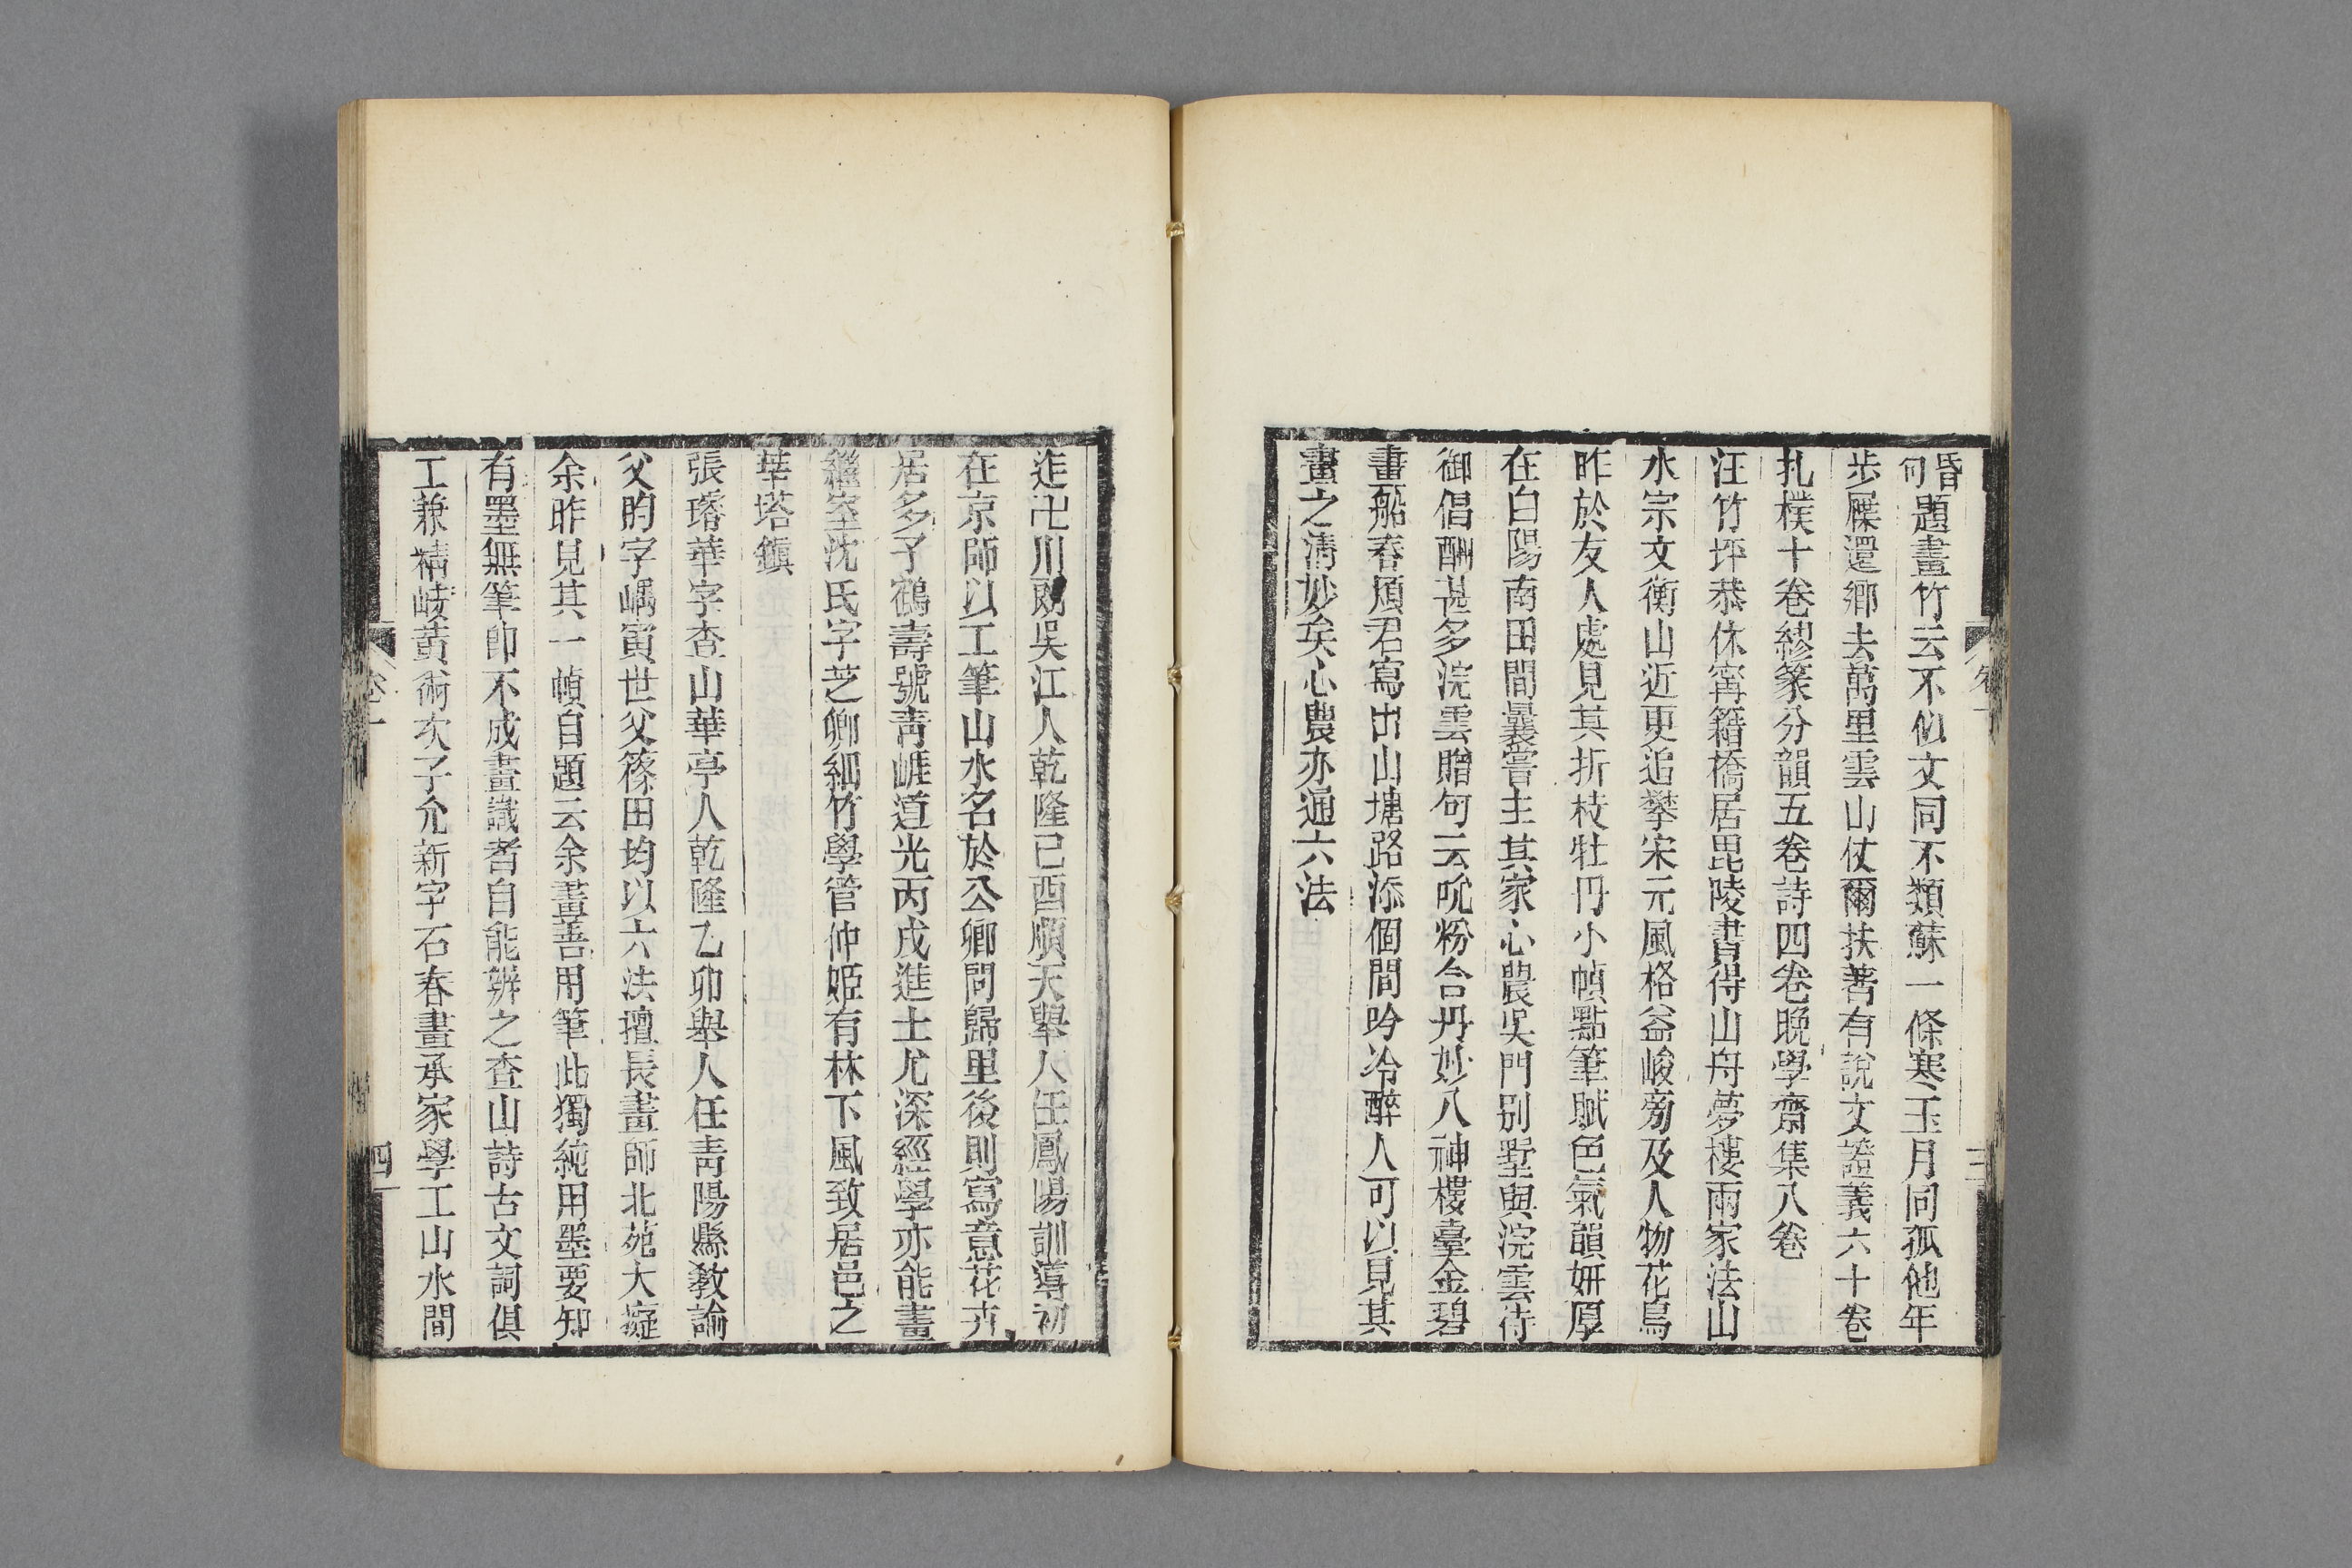 昏句題畫竹云不似文同不類蘇一條寒玉月同孤他年
步屧還鄉去萬里雲山仗爾扶著有說文證義六十卷
札樸十卷繆篆分韻五卷詩四卷晚學齋集八卷
汪竹坪恭休寧籍僑居毘陵書得山舟夢樓兩家法山
水宗文衡山近更追攀宋元風格益峻旁及人物花鳥
昨於友人處見其折枝牡丹小幀點筆賦色氣韻妍厚
在白陽南田間曩嘗主其家心農吳門别墅與浣雲侍
御倡酬甚多浣雲贈句云吮粉含丹妙入神樓臺金碧
畫船春煩君寫出山塘路添個間吟冷醉人可以見其
畫之淸妙矣心農亦通六法
迮卍川 吳江人乾隆己酉順天舉人任鳳陽訓導初
在京師以工筆山水名於公卿間歸里後則寫意花卉
居多子鶴壽號靑崕道光丙戌進士尤深經學亦能畫
繼室沈氏字芝卿細竹學管仲姬有林下風致居邑之
華塔鎭
張璿華字查山華亭人乾隆乙卯舉人任靑陽縣敎諭
父昀字嵎寅世父篠田均以六法擅長畫師北苑大癡
余昨見其一幀自題云余畫善用筆此獨純用墨要知
有墨無筆卽不成畫識者自能辨之查山詩古文詞俱
工兼精岐黃術次子允新字石春畫承家學工山水間
卷一
三
卷一
四